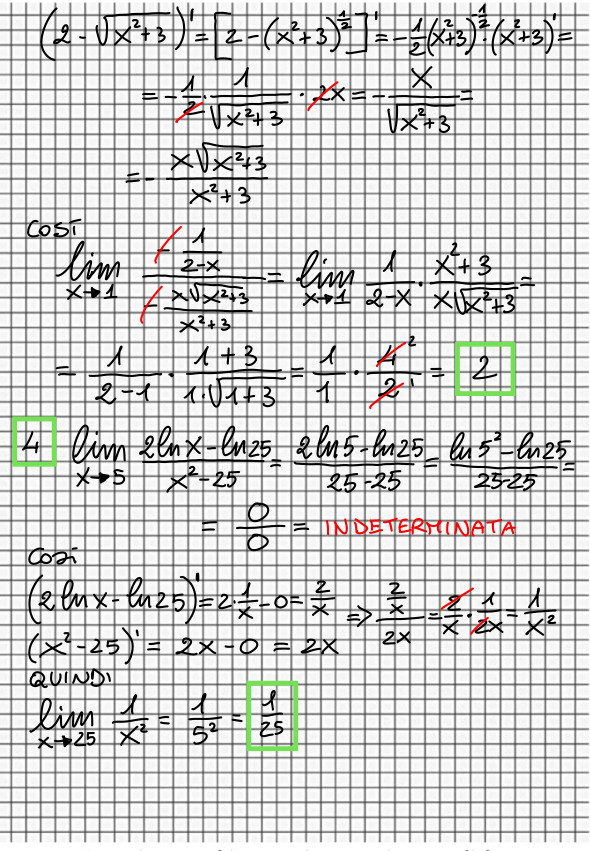 (2 - √(x²+3))' = [2 - (x²+3)^(1/2)]' = -1/2 (x²+3)^(-1/2) · (x²+3)' =
= -1/2 · 1/√(x²+3) · 2x = - x/√(x²+3) =
= - x√(x²+3)/(x²+3)
COSÌ
lim x→1 (- 1/(2-x))/(- x√(x²+3)/(x²+3)) = lim x→1 1/(2-x) · (x²+3)/(x√(x²+3)) =
= 1/(2-1) · (1+3)/(1·√(1+3)) = 1/1 · 4 2/2 1 = 2
4 lim x→5 (2lnx - ln25)/(x²-25) = (2ln5 - ln25)/(25-25) = (ln5² - ln25)/(25-25) =
= 0/0 = INDETERMINATA
COSÌ
(2lnx - ln25)' = 2·1/x - 0 = 2/x => (2/x)/2x = 2/x · 1/2x = 1/x²
(x²-25)' = 2x - 0 = 2x
QUINDI
lim x→25 1/x² = 1/5² = 1/25